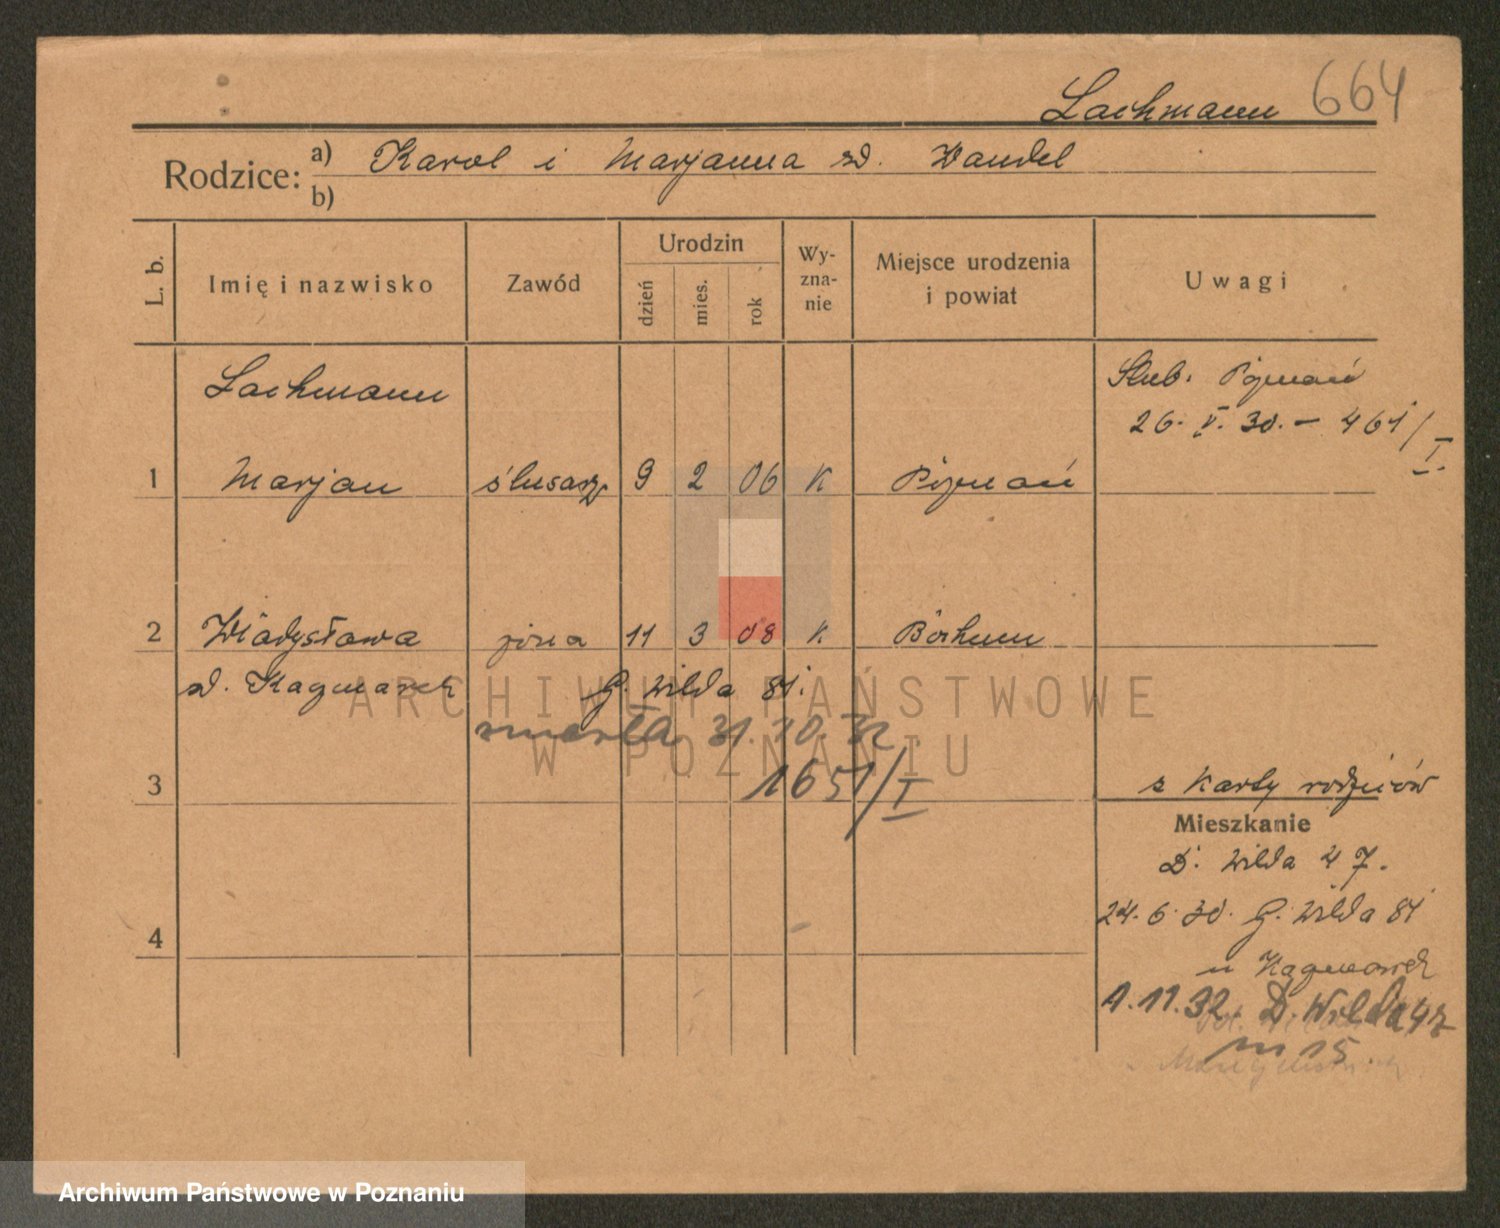 Lachmann 664
Rodzice: a) Karol i Marjanna zd. Wandel
b)
L. b. Imię i nazwisko Zawód Urodzin dzień mies. rok Wyznanie Miejsce urodzenia i powiat Uwagi
Lachmann Ślub. Poznań
26. V. 30. – 461/I.
1 Marjan ślusarz 9 2 06 K Poznań
2 Władysława żona 11 3 08 K Bochum
zd. Kaczmarek G. Wilda 81.
zmarła 31.10.32
1651/I
3 z karty rodziców
Mieszkanie
D. Wilda 47.
24.6.30. G. Wilda 81
4 u Kaczmarek
1.11.32. D. Wilda 47
m 15.
ARCHIWUM PAŃSTWOWE
W POZNANIU
Archiwum Państwowe w Poznaniu